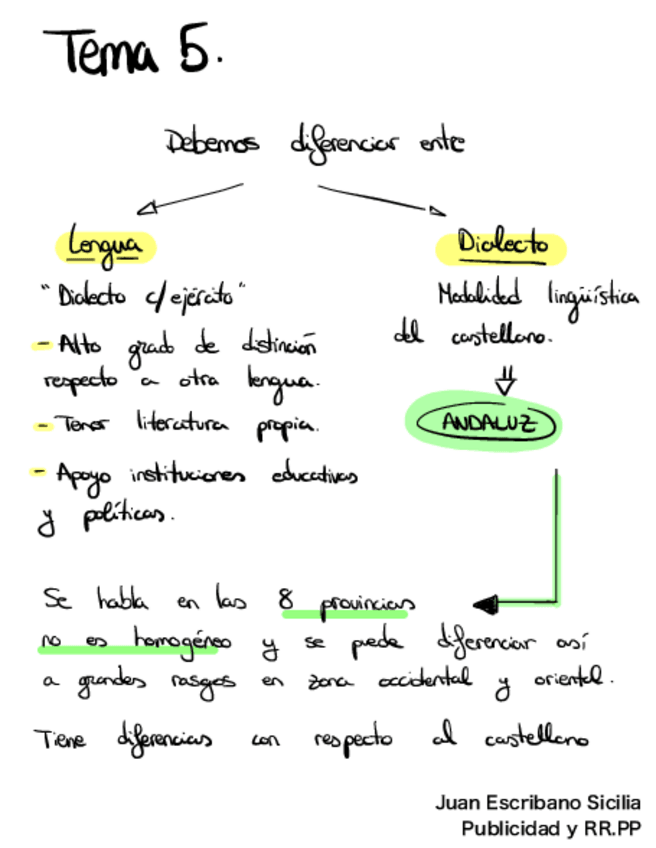 Tema 5.
Debemos diferenciar entre
Lengua
"Dialecto c/ejército"
- Alto grado de distinción
respecto a otra lengua.
- Tener literatura propia.
- Apoyo instituciones educativas
y políticas.
Dialecto
Modalidad lingüística
del castellano.
ANDALUZ
Se habla en las 8 provincias
no es homogéneo y se puede diferenciar así
a grandes rasgos en zona occidental y oriental.
Tiene diferencias con respecto al castellano
Juan Escribano Sicilia
Publicidad y RR.PP